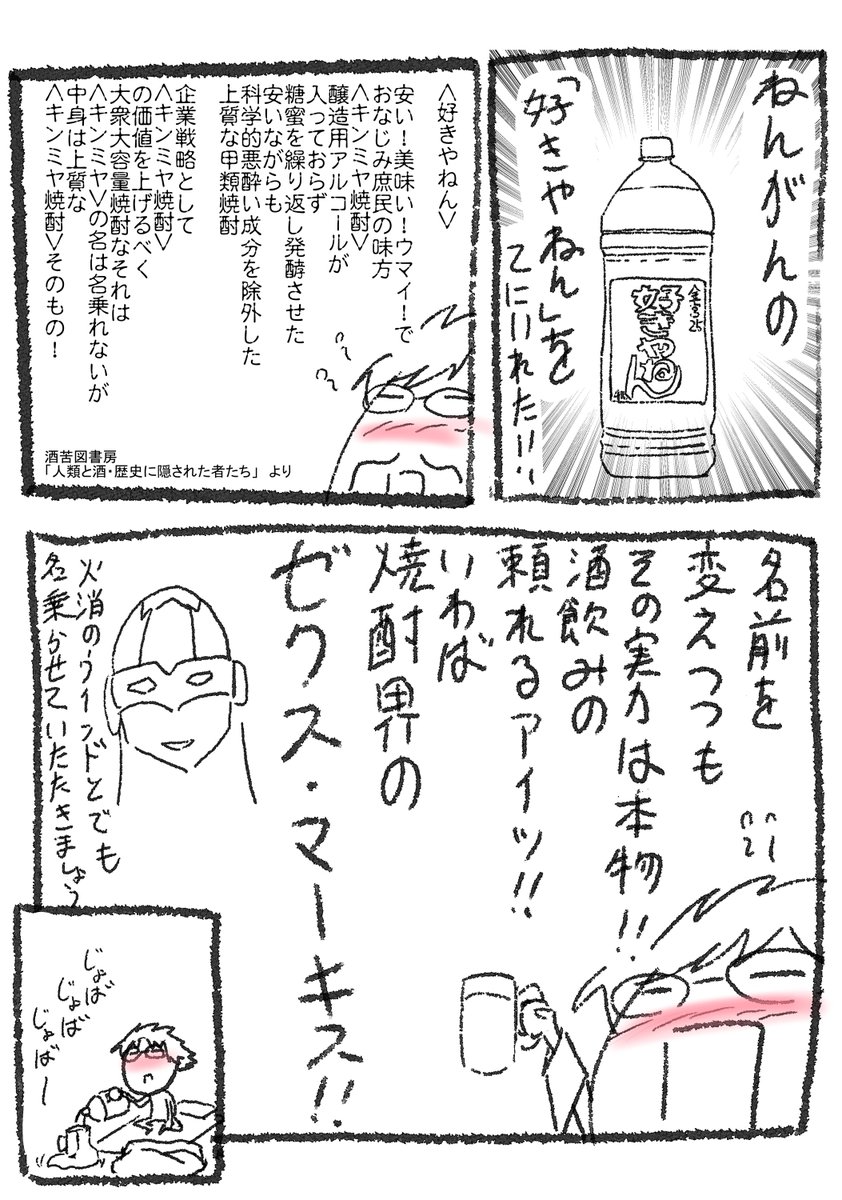 ねんがんの
「好きやねん」を
てにいれた!!
金宮25
好きやねん
<好きやねん>
安い!美味い!ウマイ!で
おなじみ庶民の味方
<キンミヤ焼酎>
醸造用アルコールが
入っておらず
糖蜜を繰り返し発酵させた
安いながらも
科学的悪酔い成分を除外した
上質な甲類焼酎
企業戦略として
<キンミヤ焼酎>
の価値を上げるべく
大衆大容量焼酎なそれは
<キンミヤ>の名は名乗れないが
中身は上質な
<キンミヤ焼酎>そのもの!
酒苦図書房
「人類と酒・歴史に隠された者たち」 より
名前を
変えつつも
その実力は本物!!
酒飲みの
頼れるアイツ!!
いわば
焼酎界の
ゼクス・マーキス!!
火消のウインドとでも
名乗らせていただきましょう
じょば
じょば
じょばー